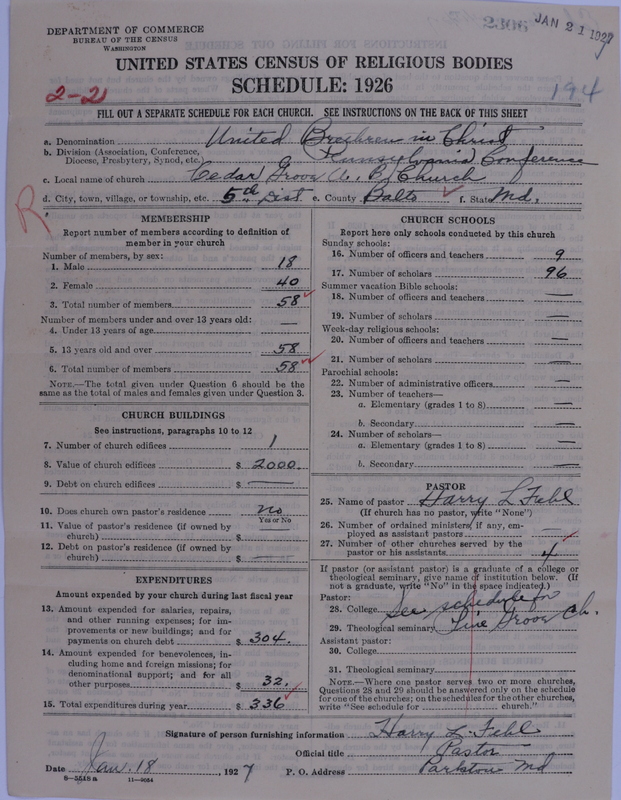 DEPARTMENT OF COMMERCE
BUREAU OF THE CENSUS
WASHINGTON
JAN 21 1927
UNITED STATES CENSUS OF RELIGIOUS BODIES
SCHEDULE: 1926
2-21
194
FILL OUT A SEPARATE SCHEDULE FOR EACH CHURCH. SEE INSTRUCTIONS ON THE BACK OF THIS SHEET
a. Denomination United Brethren in Christ
b. Division (Association, Conference, Diocese, Presbytery, Synod, etc.) Pennsylvania Conference
c. Local name of church Cedar Grove U. B. Church
d. City, town, village, or township, etc. 5th Dist e. County Balto f. State Md.
R
MEMBERSHIP
Report number of members according to definition of
member in your church
Number of members, by sex:
1. Male 18
2. Female 40
3. Total number of members 58
Number of members under and over 13 years old:
4. Under 13 years of age —
5. 13 years old and over 58
6. Total number of members 58
NOTE.—The total given under Question 6 should be the
same as the total of males and females given under Question 3.
CHURCH BUILDINGS
See instructions, paragraphs 10 to 12
7. Number of church edifices 1
8. Value of church edifices $ 2000.
9. Debt on church edifices $ —
10. Does church own pastor's residence no
Yes or No
11. Value of pastor's residence (if owned by
church) $
12. Debt on pastor's residence (if owned by
church) $ —
EXPENDITURES
Amount expended by your church during last fiscal year
13. Amount expended for salaries, repairs,
and other running expenses; for im-
provements or new buildings; and for
payments on church debt $ 304.
14. Amount expended for benevolences, in-
cluding home and foreign missions; for
denominational support; and for all
other purposes $ 32.
15. Total expenditures during year $ 336
CHURCH SCHOOLS
Report here only schools conducted by this church
Sunday schools:
16. Number of officers and teachers 9
17. Number of scholars 96
Summer vacation Bible schools:
18. Number of officers and teachers —
19. Number of scholars —
Week-day religious schools:
20. Number of officers and teachers —
21. Number of scholars —
Parochial schools:
22. Number of administrative officers —
23. Number of teachers—
a. Elementary (grades 1 to 8) —
b. Secondary —
24. Number of scholars—
a. Elementary (grades 1 to 8) —
b. Secondary —
PASTOR
25. Name of pastor Harry L Fehl
(If church has no pastor, write "None")
26. Number of ordained ministers, if any, em-
ployed as assistant pastors —
27. Number of other churches served by the
pastor or his assistants 4
If pastor (or assistant pastor) is a graduate of a college or
theological seminary, give name of institution below. (If
not a graduate, write "No" in the space indicated.)
Pastor:
28. College See schedule for
29. Theological seminary Pine Grove Ch.
Assistant pastor:
30. College
31. Theological seminary
NOTE.—Where one pastor serves two or more churches,
Questions 28 and 29 should be answered only on the schedule
for one of the churches; on the schedules for the other churches,
write "See schedule for church."
Signature of person furnishing information Harry L. Fehl
Official title Pastor
Date Jan. 18, 1927 P. O. Address Parkton Md
8-5518 a 11-9084